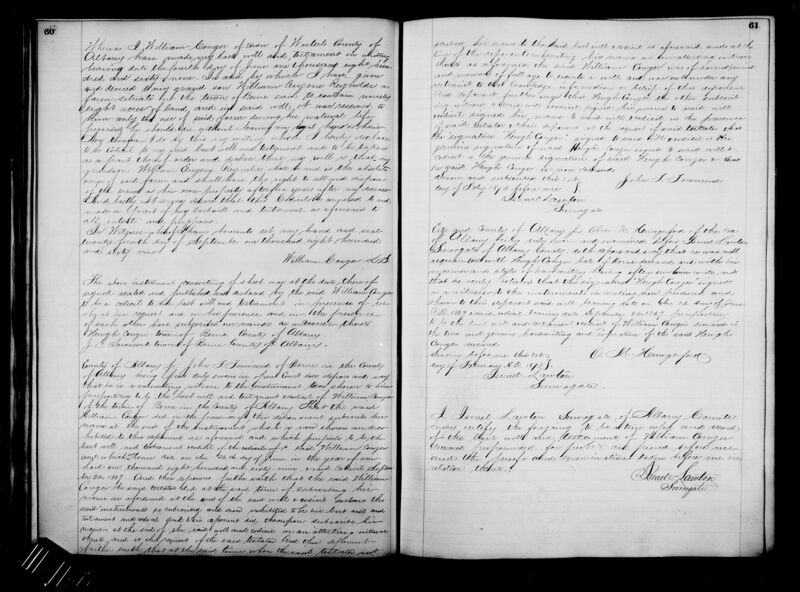 60
Whereas I, William Conger of town of Westerlo County of
Albany have made my last will and testament in writing
bearing date the fourth day of June one thousand eight hun
dred and sixty nine. In and by which I have given
and devised to my grand son William Eugene Reynolds a
farm situate in the town of Berne said to contain
eight acres of land, and in said will, it was reserved to
him only the use of said farm during his natural life
provided he should die without leaving any legal heirs
Now therefore I do by this my writing which I hereby declare
to be Codicil to my said last will and testament and to be taken
as a part thereof order and declare that my will is that my
grandson William Eugene Reynolds shall be the absolute
of said farm and shall have the right to sell and dispose
of the same as his own property after five years after my decease
And lastly it is my desire that this Codicil be annexed to and
made a part of my last will and testament as aforesaid to
all intents and purposes
In Witness whereof I have hereunto set my hand and seal
twenty fourth day of September one thousand eight hundred
and sixty nine
William Conger L.S.
The above instrument consisting of sheet was at the date thereof
signed sealed and published and declared by the said William Conger
to be a codicil to his last will and testament in presence of us
who at his request and in his presence and in the presence
of each other have subscribed our names as witnesses thereto
Hugh Conger town of Berne County of Albany
J. S. Townsend town of Berne County of Albany
County of Albany ss: John S. Townsend of Berne in the County
of Albany being duly sworn in open Court does depose and say
that he is a subscribing witness to the Instrument now shown to him
purporting to be the last will and testament & codicil of William Conger
of the town of Berne in the County of Albany that the said
William Conger did in the presence of this deponent subscribe his
name at the end of the Instrument which is now shown and ex
hibited to this deponent as aforesaid and which purports to be the
last will and testament codicil of the said William Conger
and which bears date on the 4th day of June in the year of our
Lord one thousand eight hundred and sixty nine & said Codicil Septem
ber 24 1869. And this deponent further saith that the said William
Conger the said testator did at the said time of subscribing his
name as aforesaid at the end of the said will & codicil declare the
said instrument so subscribed and now exhibited to be his last will and
testament and codicil and this deponent did thereupon subscribe his
name at the end of the said will and codicil as an attesting witness
thereto and at the request of the said testator. And this deponent
further saith that at the said time when the said testator
61
subscribed his name to the said last will & codicil as aforesaid and at the
time of the deponent subscribing his name as an attesting witness
thereto as aforesaid the said William Conger was of sound mind
and memory of full age to execute a will and was not under any
restraint to the knowledge information or belief of this deponent
And deponent further says that Hugh Conger the other subscrib
ing witness to said will & codicil signed his name to said will
codicil signed his name to said will & codicil in the presence
of said testator & this deponent at the request of said testator that
the signature "Hugh Conger" signed to said will & codicil is the
genuine signature of said Hugh Conger signed to said will &
codicil is the genuine signature of said Hugh Conger & that
the said Hugh Conger is now deceased
Sworn and subscribed this 1st
day of Feby 1878 before me
John S. Townsend
Israel Lawton
Surrogate
City and County of Albany ss: Oliver M. Hungerford of the City
of Albany being duly sworn and examined before Israel Lawton
Surrogate of Albany County doth depose and say that he was well
acquainted with Hugh Conger late of Berne deceased and with his
manner and style of handwriting having often seen him write, and
that he verily believes that the signature Hugh Conger signed
as a witness to the instrument in writing now produced and
shown to this deponent said will bearing date on the day of June
A.D. 1869 and codicil bearing date September 24 1869 purporting
to be the last will and testament codicil of William Conger deceased is
the true and genuine handwriting and signature of the said Hugh
Conger deceased
Sworn before me this 1st
day of February A.D. 1878
O. M. Hungerford
Israel Lawton
Surrogate
I Israel Lawton Surrogate of Albany County
hereby certify the foregoing to be a true copy and record
of the last will and testament of William Conger
deceased propounded for probate and proved before me
and the proofs and examinations taken before me in
relation thereto
Israel Lawton
Surrogate